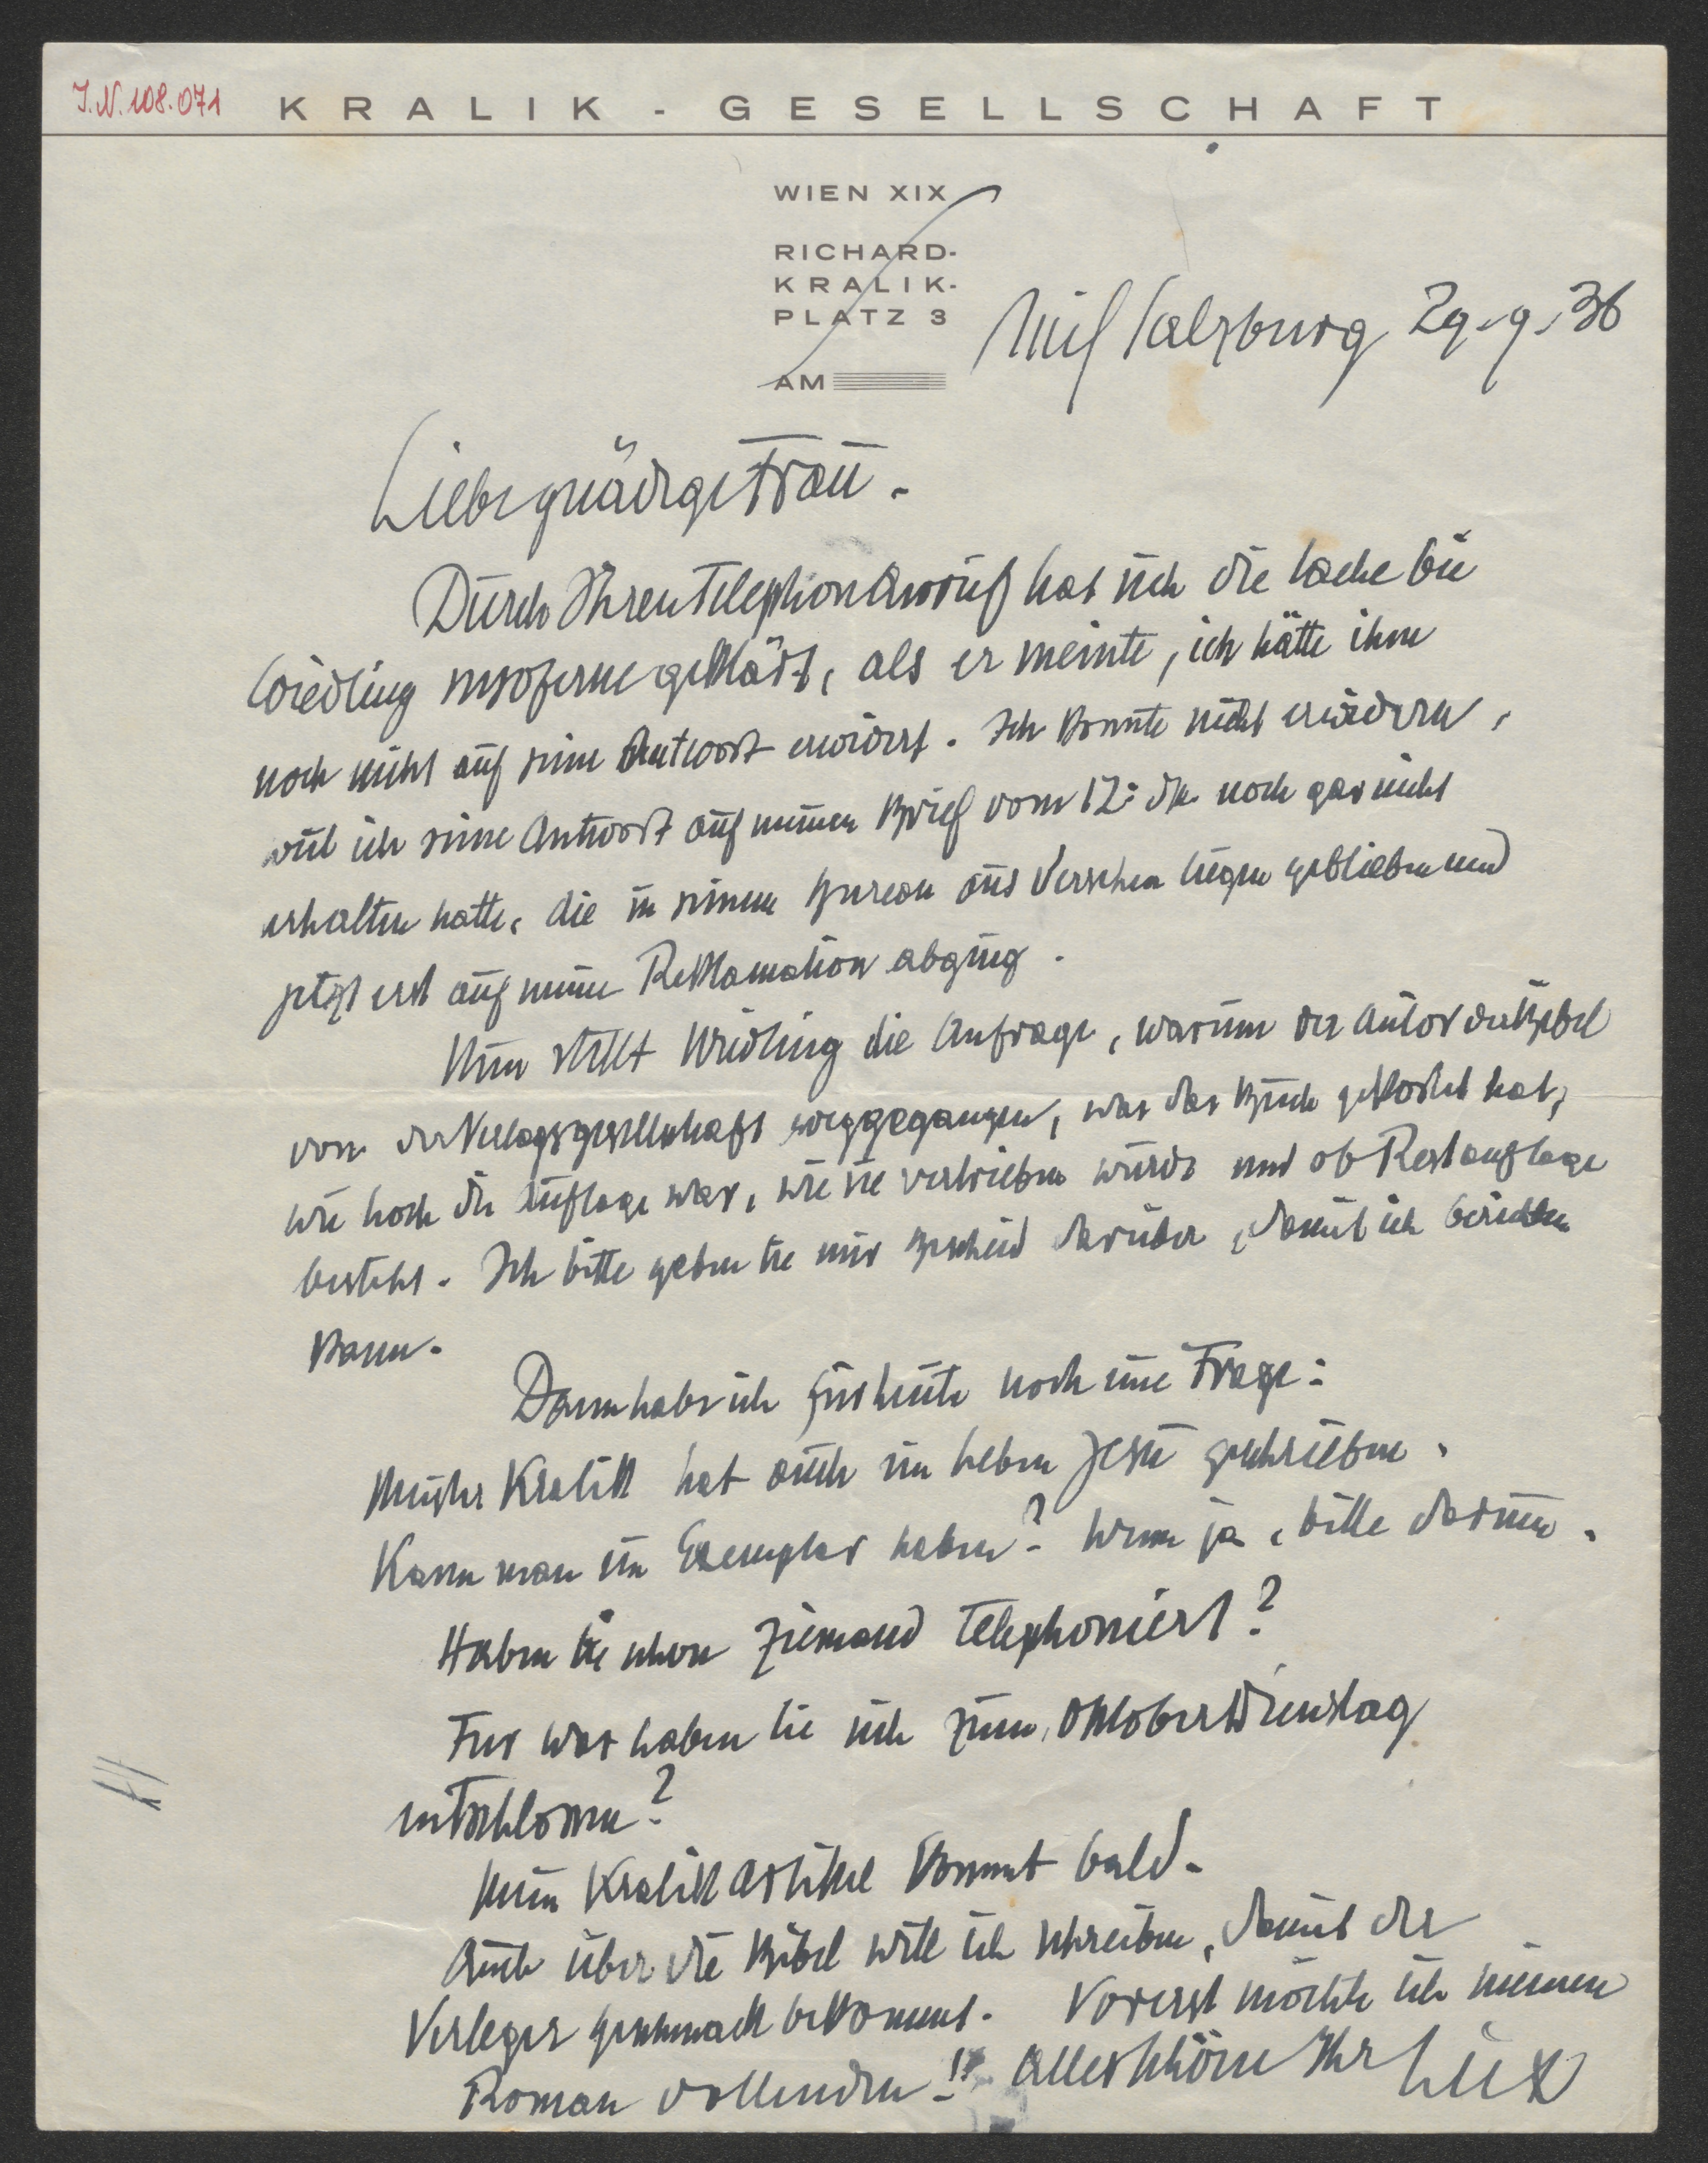 J.N. 108.071
KRALIK - GESELLSCHAFT
WIEN XIX
RICHARD-
KRALIK-
PLATZ 3
AM
Anif Salzburg 29.9.36
Liebe gnädige Frau.
Durch Ihren Telephonanruf hat sich die Sache bei
Wiedling insoferne geklärt, als er meinte, ich hätte ihm
noch nicht auf seine Antwort erwidert. Ich konnte nicht erwidern,
weil ich seine Antwort auf meinen Brief vom 12. ds. noch gar nicht
erhalten hatte, die in seinem Bureau aus Versehen liegen geblieben und
jetzt erst auf meine Reklamation abging.
Nun stellt Wiedling die Anfrage, warum der Autor der Bibel
von der Verlagsgesellschaft weggegangen, was das Buch gekostet hat,
wie hoch die Auflage war, wie sie vertrieben wurde und ob Restauflage
besteht. Ich bitte geben Sie mir Bescheid darüber, damit ich berichten
kann.
Dann habe ich für heute noch eine Frage:
Meister Kralik hat auch ein Leben Jesu geschrieben.
Kann man ein Exemplar haben? Wenn ja, bitte darum.
Haben Sie schon Ziemand telephoniert?
Für was haben Sie sich zum Oktober Dienstag
entschlossen?
Mein Kralik Artikel kommt bald.
Auch über die Bibel will ich schreiben, damit der
Verleger Geschmack bekommt. Vorerst möchte ich meinen
Roman vollenden!! Alles Schöne Ihr Lux